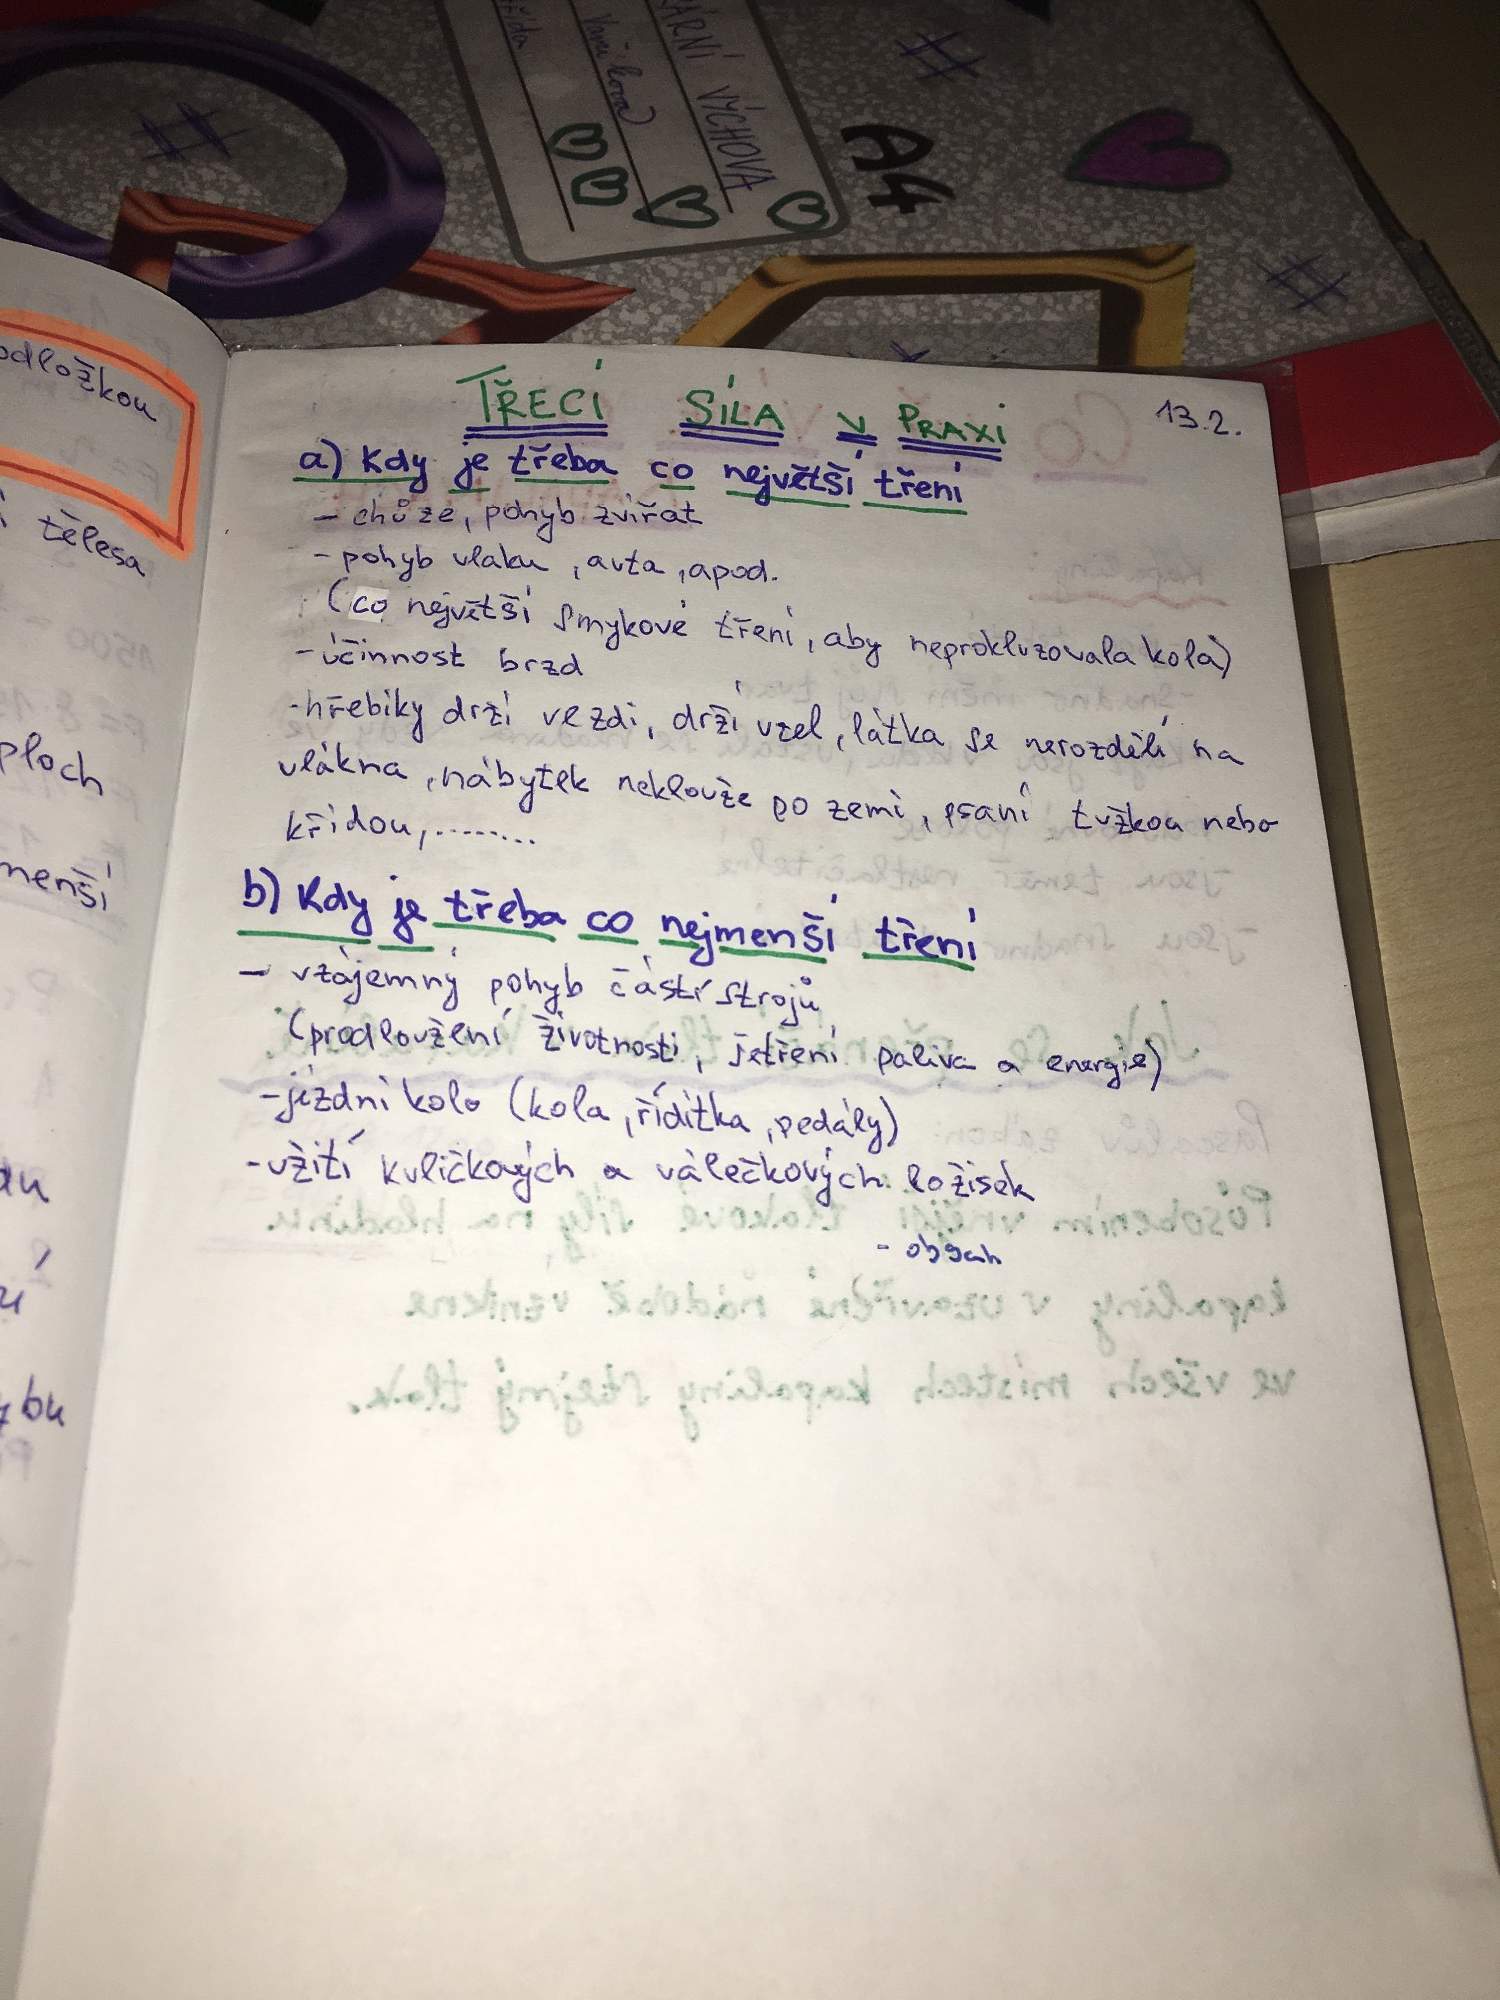 ÁRNÍ VÝCHOVA
A4
třída
odložkou
í tělesa
ploch
menší
bu
TŘECÍ SÍLA V PRAXI 13.2.
a) Kdy je třeba co největší tření
- chůze, pohyb zvířat
- pohyb vlaku, auta, apod.
(co největší smykové tření, aby neprokluzovala kola)
- účinnost brzd
- hřebíky drží ve zdi, drží uzel, látka se nerozdělí na
vlákna, nábytek neklouže po zemi, psaní tužkou nebo
křídou, ........
b) Kdy je třeba co nejmenší tření
- vzájemný pohyb částí strojů
(prodloužení životnosti, šetření paliva a energie)
- jízdní kolo (kola, řídítka, pedály)
- užití kuličkových a válečkových ložisek
- obsah